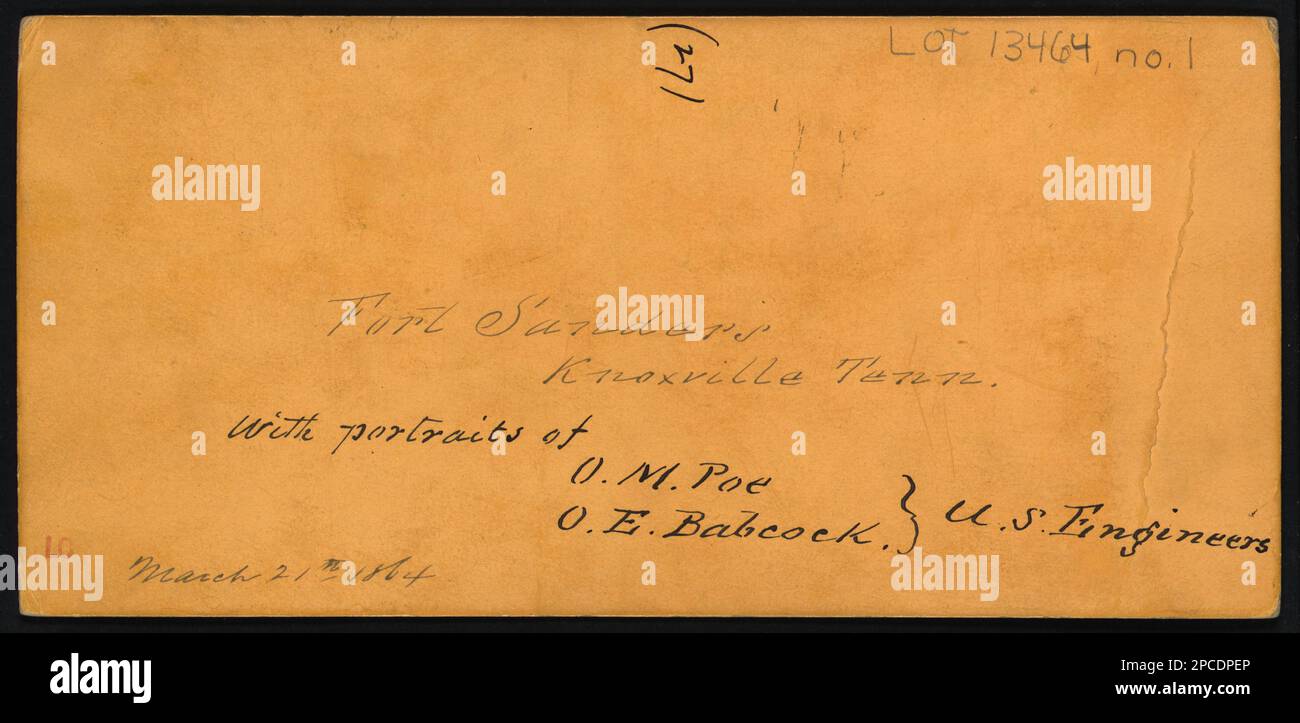 (27)
LOT 13464, no. 1
Fort Sanders
Knoxville Tenn.
With portraits of
O. M. Poe
O. E. Babcock. } U. S. Engineers
10
March 21st 1864
alamy
Image ID: 2PCDPEP
www.alamy.com